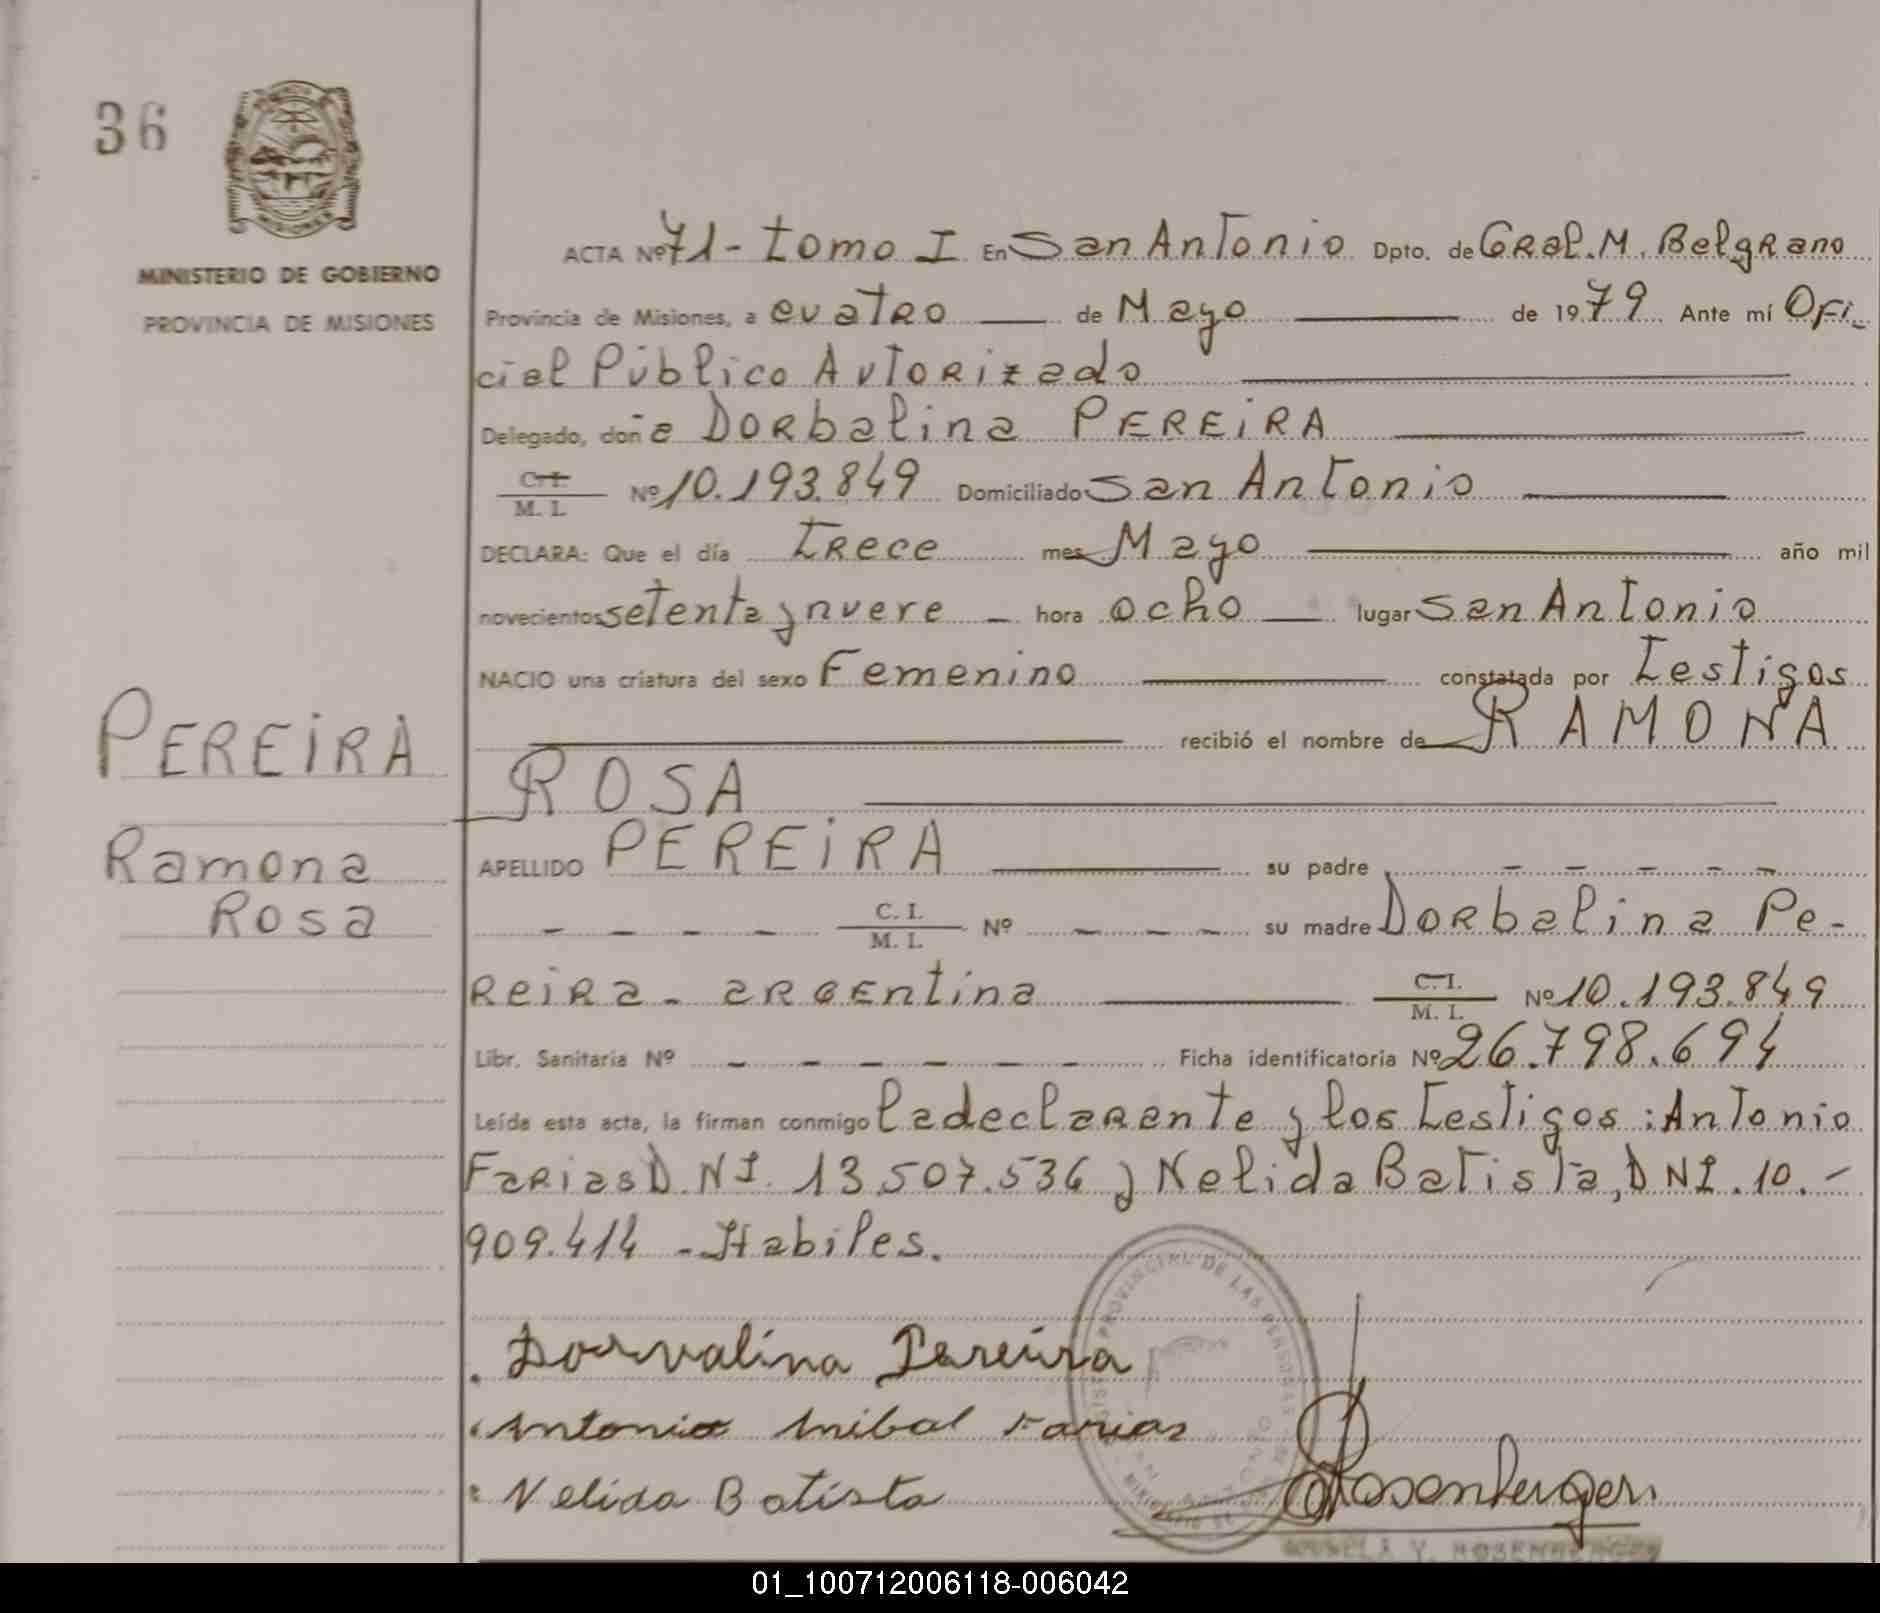 36
MINISTERIO DE GOBIERNO
PROVINCIA DE MISIONES
ACTA Nº 71 - Tomo I En San Antonio Dpto. de Gral. M. Belgrano
Provincia de Misiones, a cuatro de Mayo de 1979 Ante mí Ofi-
cial Público Autorizado
Delegado, doña Dorbalina PEREIRA
C. I. / M. I. Nº 10.193.849 Domiciliado San Antonio
DECLARA: Que el día Trece mes Mayo año mil
novecientos setenta y nueve hora ocho lugar San Antonio
NACIO una criatura del sexo Femenino constatada por Testigos
recibió el nombre de RAMONA
ROSA
APELLIDO PEREIRA su padre - - - - -
- - - - C. I. / M. I. Nº - - - su madre Dorbalina Pe-
reira - argentina C. I. / M. I. Nº 10.193.849
Libr. Sanitaria Nº - - - - - Ficha identificatoria Nº 26.798.694
Leída esta acta, la firman conmigo la declarante y los Testigos: Antonio
Farias D.N.I. 13.507.536 y Nelida Batista, DNI. 10.-
909.414 - Habiles.
PEREIRA
Ramona
Rosa
Dorvalina Pereira
Antonio Anibal Farias
Nelida Batista
Rosenberger
PROVINCIAL DE LAS PERSONAS
Y. ROSENBERGER
01_100712006118-006042